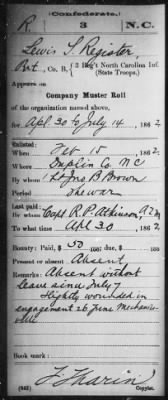 Confederate.
R. 3 N.C.
Lewis S. Register
Pvt., Co. B, 3 Reg't North Carolina Inf.
(State Troops.)
Appears on
Company Muster Roll
of the organization named above,
for Apl 30 to July 14, 1862.
Enlisted:
When Feb 15, 1862.
Where Duplin Co NC
By whom Lt Jno B. Brown
Period the war
Last paid:
By whom Capt R. P. Atkinson A.Q.M
To what time Apl 30, 1862.
Bounty: Paid $ 50/100; due $ /100
Present or absent Absent
Remarks: Absent without
leave since July 7
Slightly wounded in
engagement 26 June Mechanics-
ville
Book mark: